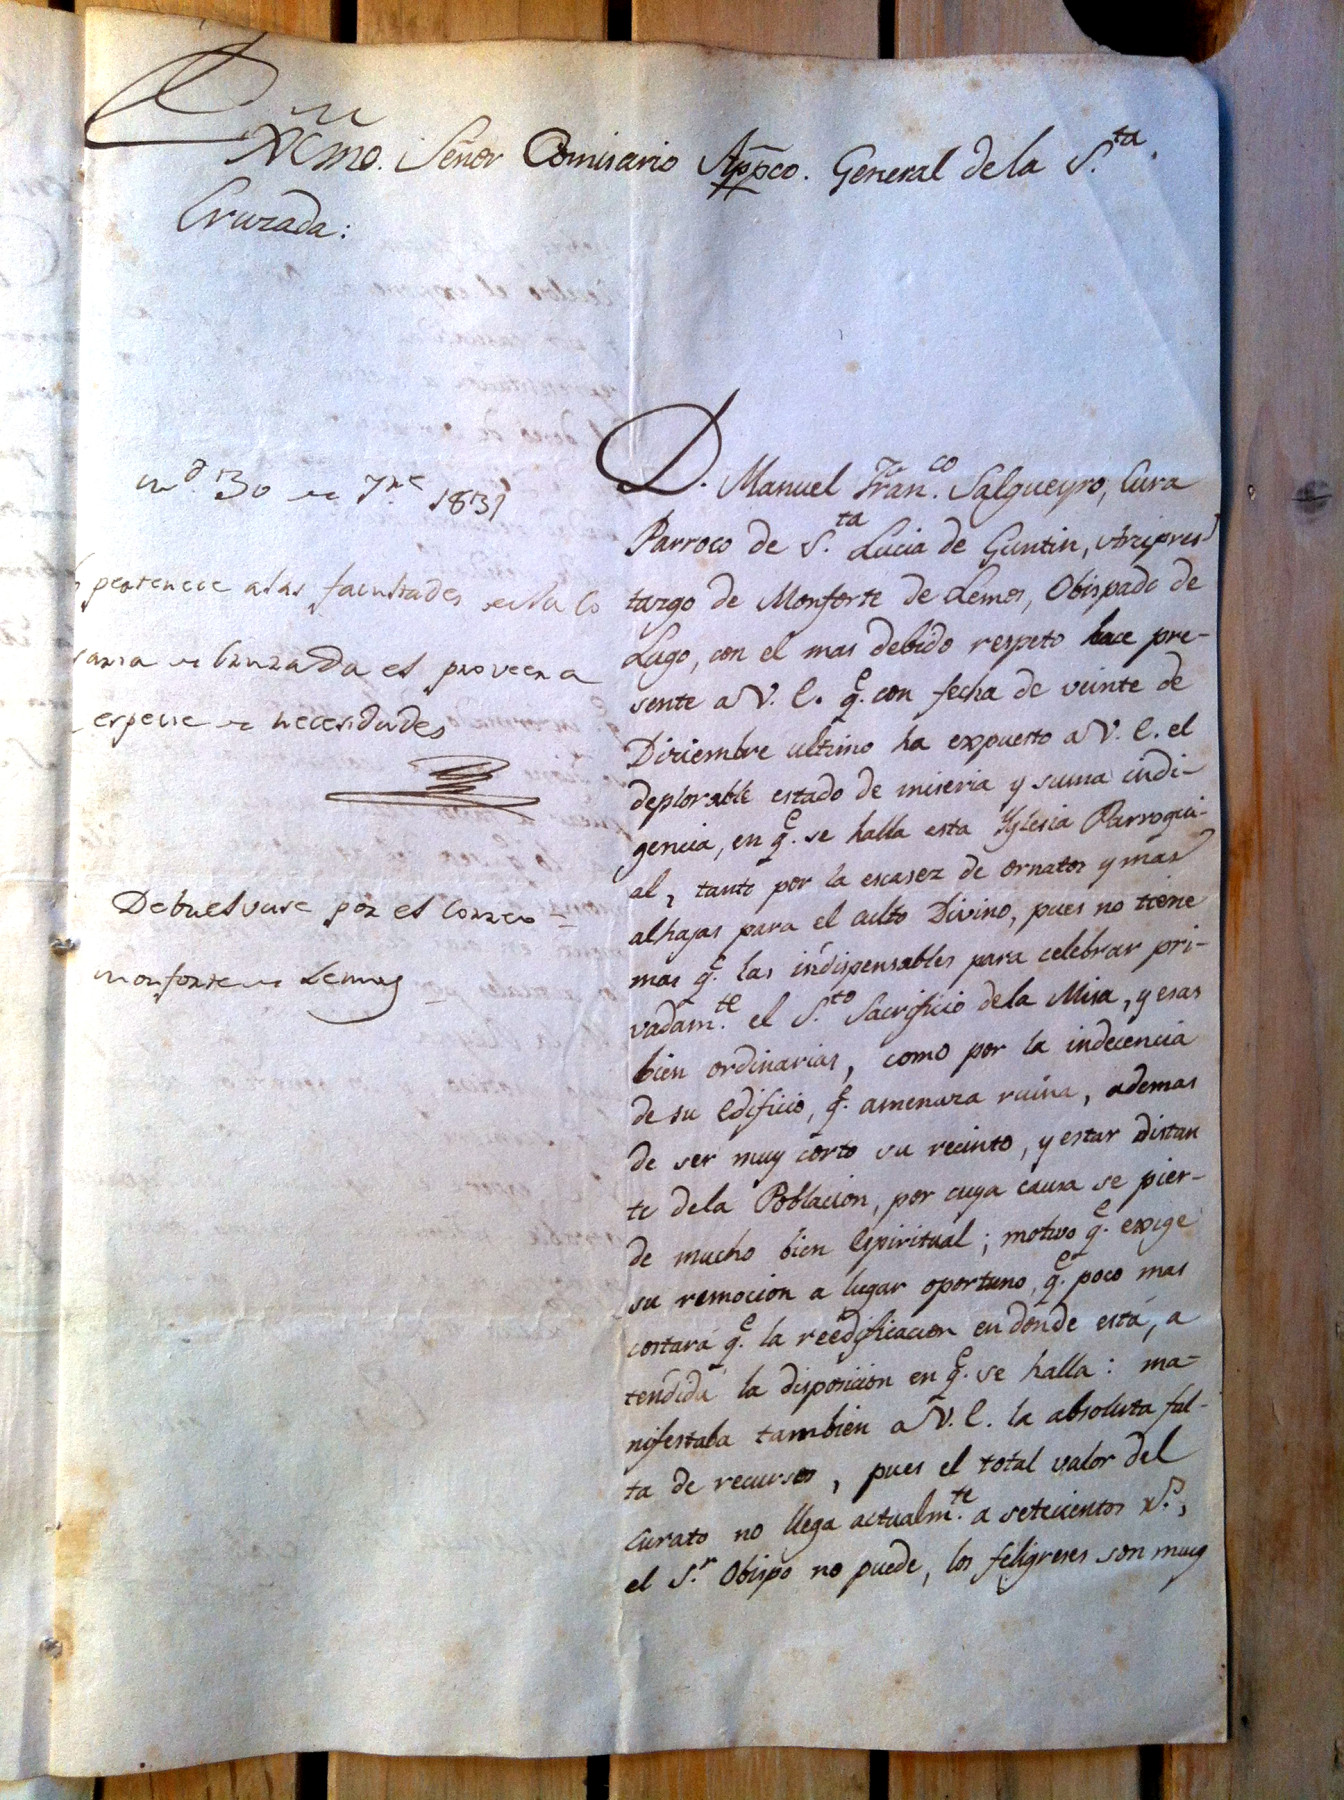 Excmo. Señor Comisario Appco. General de la S.ta
Cruzada:
M.d 30 de 7re 1831
pertenece a las facultades de la Co
saria de Cruzada el proveer a
especie de necesidades
Debuelvase por el Correo
Monforte de Lemus
D. Manuel Fran.co Salgueyro, Cura
Parroco de S.ta Lucia de Guntin, Arcipres
tazgo de Monforte de Lemos, Obispado de
Lugo, con el mas debido respeto hace pre-
sente a V. E. q.e con fecha de veinte de
Diciembre ultimo ha expuesto a V. E. el
deplorable estado de miseria y suma indi-
gencia, en q.e se halla esta Yglesia Parroqui-
al, tanto por la escasez de ornatos y mas
alhajas para el culto Divino, pues no tiene
mas q.e las indispensables para celebrar pri-
vadam.te el S.to Sacrificio de la Misa, y esas
bien ordinarias, como por la indecencia
de su Edificio, q.e amenaza ruina, ademas
de ser muy corto su recinto, y estar distan
te de la Poblacion, por cuya causa se pier-
de mucho bien Espiritual; motivo q.e exige
su remocion a lugar oportuno, q.e poco mas
costará q.e la reedificacion en donde está, a
tendida la disposicion en q.e se halla: ma-
nifestaba tambien a V. E. la absoluta fal-
ta de recursos, pues el total valor del
Curato no llega actualm.te a setecientos r.s,
el S.r Obispo no puede, los feligreses son muy